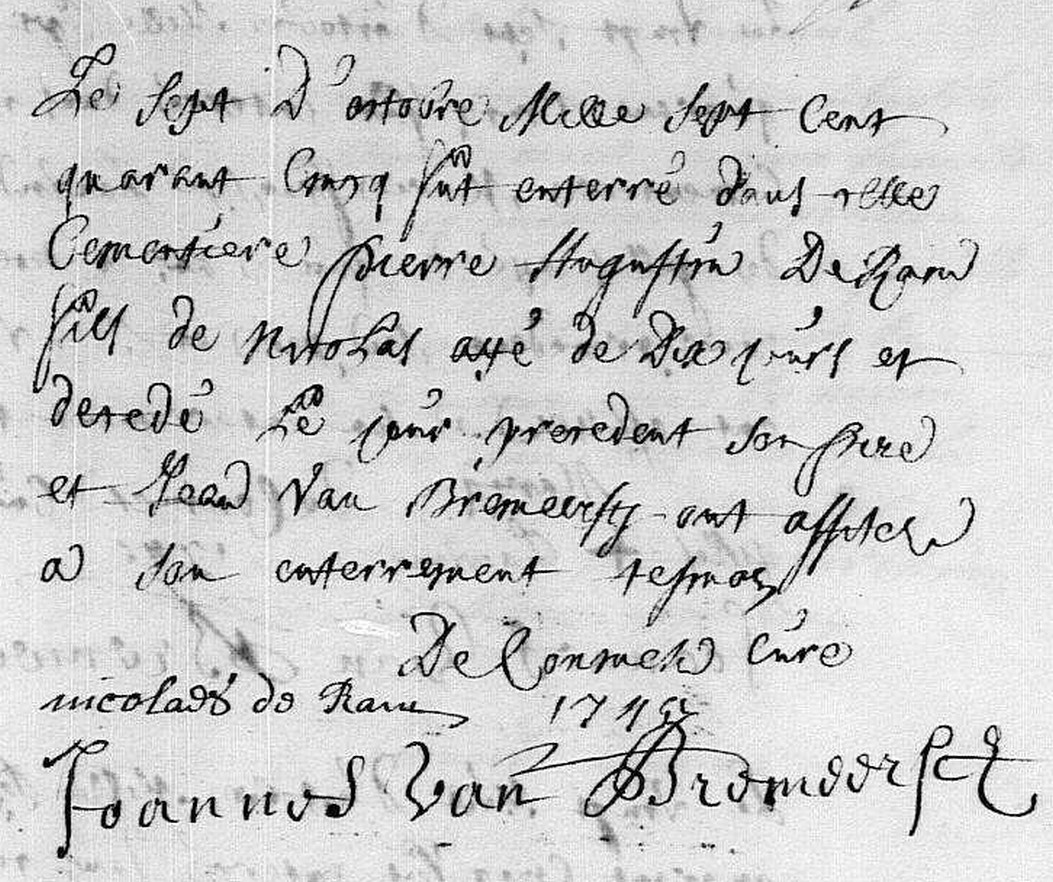 Le sept D'octobre Mille sept Cent
quarant Cincq fut enterré dans celle
Cementiere Pierre Augustin De Ram
fils de Nicolas agé de Dix jours et
decedé Le jour precedent son Pere
et Jean Van Bremeersch ont assisté
a son enterrement tesmoins
De Coninck Curé
nicolaes de Ram 1745
Joannes Van Bremeersch